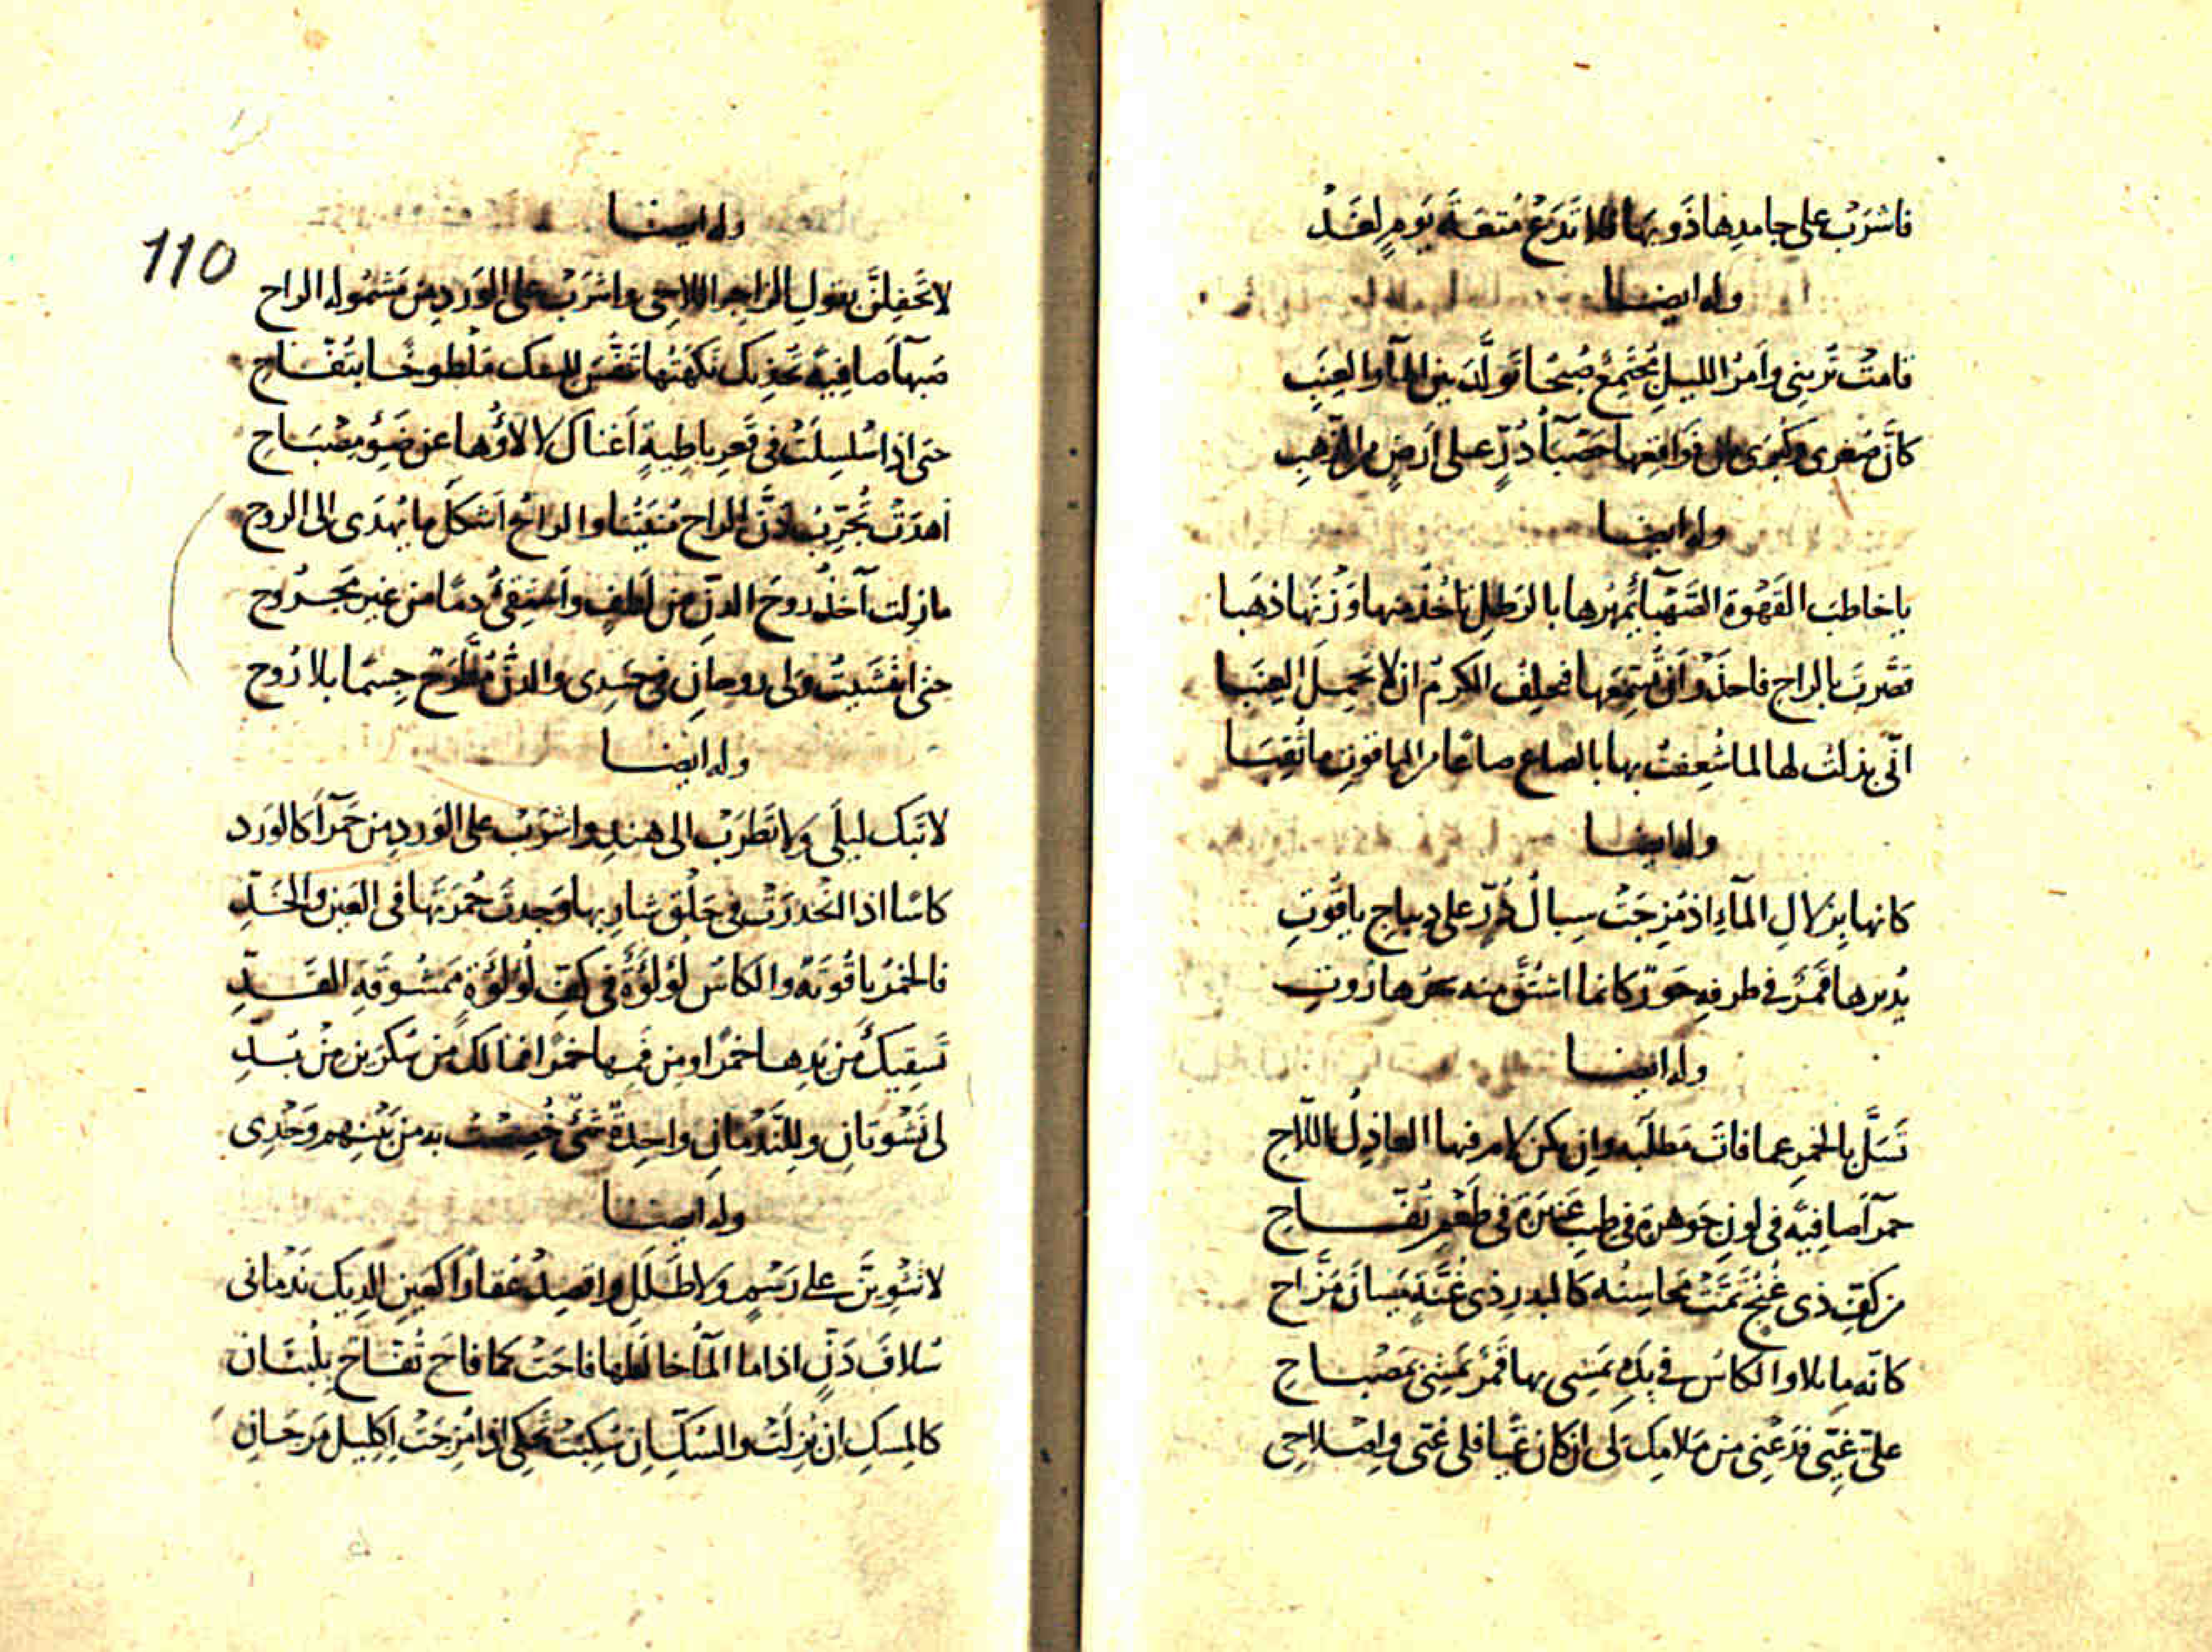 فاشرَبْ على جامدِها ذَوبَها فلا تَدَعْ مُتعَةَ يَومٍ لغَدْ
وله ايضا
قامتْ تُرِينِى وأمرُ الليلِ مُجتَمِعٌ صُبحًا تَولَّدَ بين المآ والعِنَبِ
كأنَّ صُغرى وكُبرى من فَواقِعِها حَصبَآُ دُرٍّ على اَرضٍ من الذهبِ
وله ايضا
ياخاطبَ القَهوة الصَّهبآءِ يُمهِرُها بالرَطلِ يأخُذُ منها وَزنَها ذهَبا
قصَّرتَ بالراحِ فاحذَر أن تُسمِعَها فيحلِفُ الكَرمُ ان لا يَحمِلَ العِنَبا
انّى بذلتُ لها لما شُغِفتُ بها بالصاعِ صاعًا من الياقوتِ ماثُقِبَا
وله ايضا
كانها بِزلالِ المآءِ اذ مُزِجَتْ سِبالُ دُرٍّ على ديباجِ ياقُوتِ
يُديرها قَمَرٌ فى طرفهِ حَوَرٌ كانما اشتُقَّ منه سحرُ هارُوتِ
وله ايضا
تَسَلَّ بالخمرِ عما فاتَ مَطلَبَه وان يكن لامَ فيها العاذِلُ اللّاحِ
حمرآ صافيَة فى لونِ جَوهرَةٍ فى طِيبِ عَنبَرَةٍ فى طَعمِ تُفّــاحِ
من كفِّ ذى غُنجٍ تَمَّت مَحاسِنُه كالبدرِ ذى غُنَّةٍ مَيسانَ مَزَّاح
كانّه مايلا والكاسُ فى يَدِه يَمشِى بها قَمَرٌ يَمشِى بمصباحِ
علىّ غيّى فدَعنِى من مَلامِك لى ان كان غيًّا فلى غيّى واصْلاحِى
110
وله ايضا
لا تَحفِلَنَّ بقولِ الزاجرِ اللاحِى واشرَبْ على الوَردِ من مَشمُوله الراح
صَهبآ صافِيةً تُجذِيك نَكهَتُها تَنَفُّسَ المسك مَلطوخًا بتُفّــاحِ
حتى اذا سُلسِلَتْ فى قَعرِ باطِيةٍ اَغناك لالاؤُها عن ضَوءِ مِصبَــاحِ
اَهدَتْ الراح والراحُ اَشكَلُ مايُهدَى الى الروحِ
مازِلت آخذُ رُوحَ الدنّ من لُطفٍ وأَستقِى دمًا من غيرِ مَجــرُوح
حتى انثَنَيتُ وَلى روحانِ فى جَسَدِى والدنُّ مُطَّرَحٌ جِسمًا بلا رُوح
وله ايضا
لاتَبكِ ليلَى ولا تَطرَبْ الى هندٍ واشرَبْ على الوَردِ من حَمرآ كالوَرد
كاسًا اذا انحَدَرَت فى حَلْقِ شارِبها وَجدتَ حُمرَتَها فى العَينِ والخدِّ
فالخمرُ ياقُوتَةٌ والكاسُ لُؤلؤَةٌ فى كفِّ لُؤلؤَةٍ مَمشُوقَةِ القَــدِّ
تَسقِيكَ من يَدِها خمرًا ومن فَمِها خمرًا فمالكَ من سُكرَينِ من بُــدِّ
لى نَشوتانِ وللنَّدمانِ واحِدةٌ شَئٌ خُصِصتُ به من بَينهِم وَحْدِى
وله ايضا
لا على رَسمٍ ولا طَلَلِ واقصِد عُقارًا كعَينِ الدِيك نَدمانى
سُلافَ دَنٍّ اذا ما المآُ خالطَها فاحَتْ كما فاحَ تُفّــاح بِلُبنَــان
كالمِسكِ ان بُزِلَتْ والسَكبِ ان سُكِبَتْ تَحكِى اذا مُزِجَتْ اِكلِيلَ مَرجَــانِ